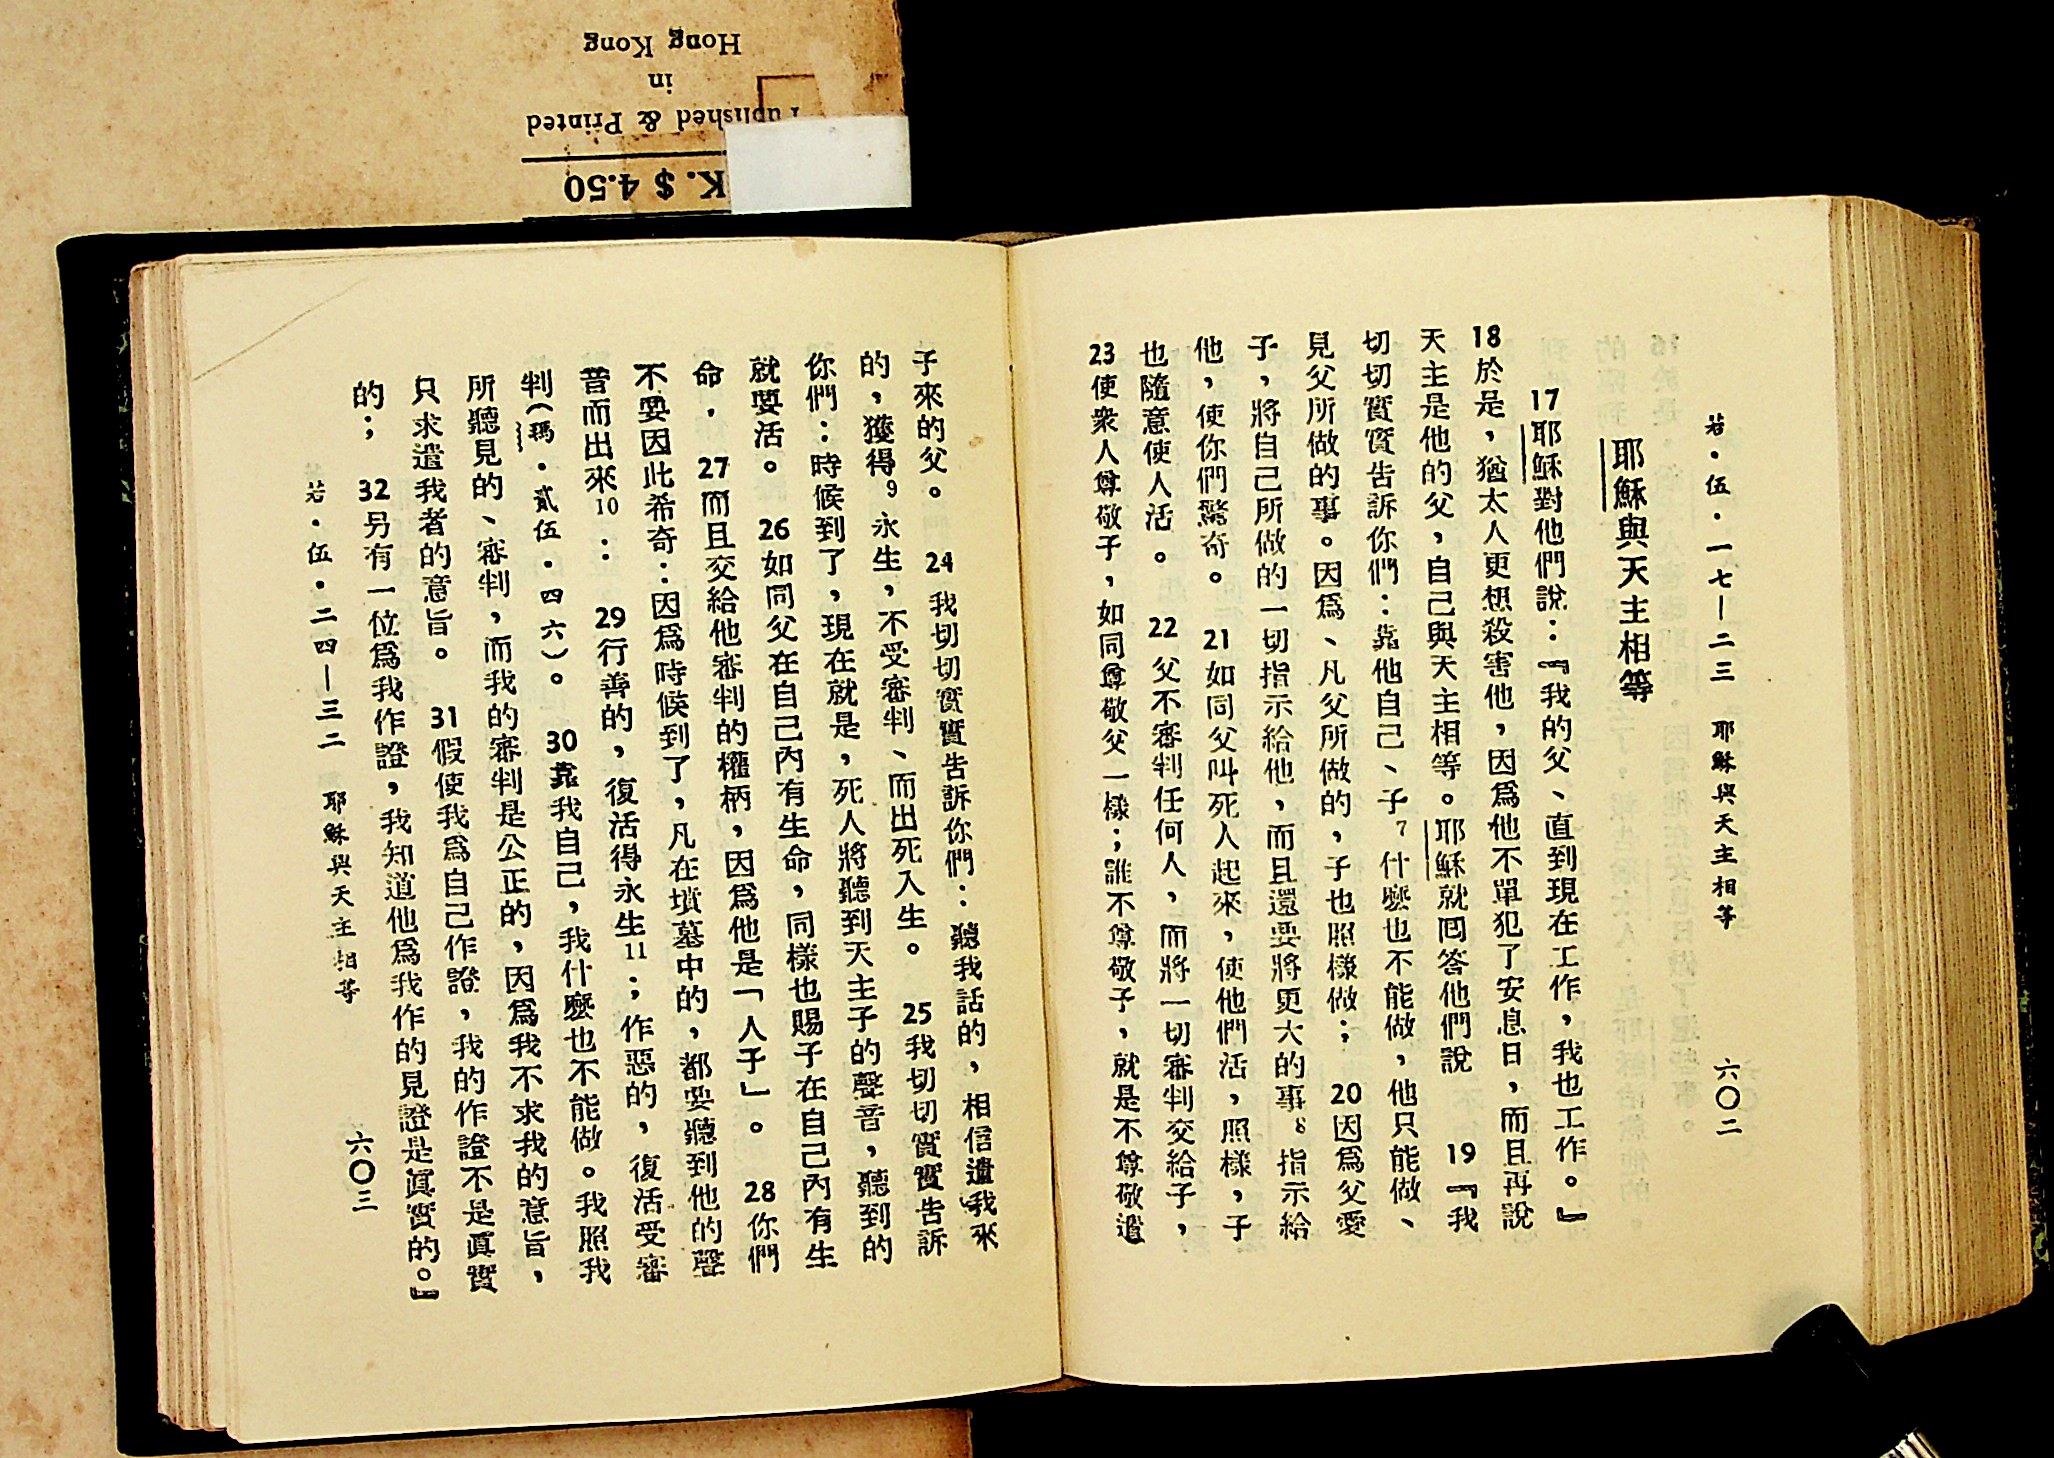 若．伍．一七—二三　耶穌與天主相等　六〇二
耶穌與天主相等
17耶穌對他們說：『我的父、直到現在工作，我也工作。』
18於是，猶太人更想殺害他，因爲他不單犯了安息日，而且再說
天主是他的父，自己與天主相等。耶穌就囘答他們說　19『我
切切實實告訴你們：靠他自己、子7什麼也不能做，他只能做、
見父所做的事。因爲、凡父所做的，子也照樣做；　20因爲父愛
子，將自己所做的一切指示給他，而且還要將更大的事8指示給
他，使你們驚奇。　21如同父叫死人起來，使他們活，照樣，子
也隨意使人活。　22父不審判任何人，而將一切審判交給子，
23使衆人尊敬子，如同尊敬父一樣；誰不尊敬子，就是不尊敬遣
子來的父。　24我切切實實告訴你們：聽我話的，相信遣我來
的，獲得9永生，不受審判、而出死入生。　25我切切實實告訴
你們：時候到了，現在就是，死人將聽到天主子的聲音，聽到的
就要活。　26如同父在自己內有生命，同樣也賜子在自己內有生
命，　27而且交給他審判的權柄，因爲他是「人子」。　28你們
不要因此希奇：因爲時候到了，凡在墳墓中的，都要聽到他的聲
音而出來10：　29行善的，復活得永生11；作惡的，復活受審
判（瑪．貳伍．四六）。　30靠我自己，我什麼也不能做。我照我
所聽見的、審判，而我的審判是公正的，因爲我不求我的意旨，
只求遣我者的意旨。　31假使我爲自己作證，我的作證不是眞實
的；　32另有一位爲我作證，我知道他爲我作的見證是眞實的。』
若．伍．二四—三二　耶穌與天主相等　六〇三
K. $ 4.50
Published & Printed
in
Hong Kong